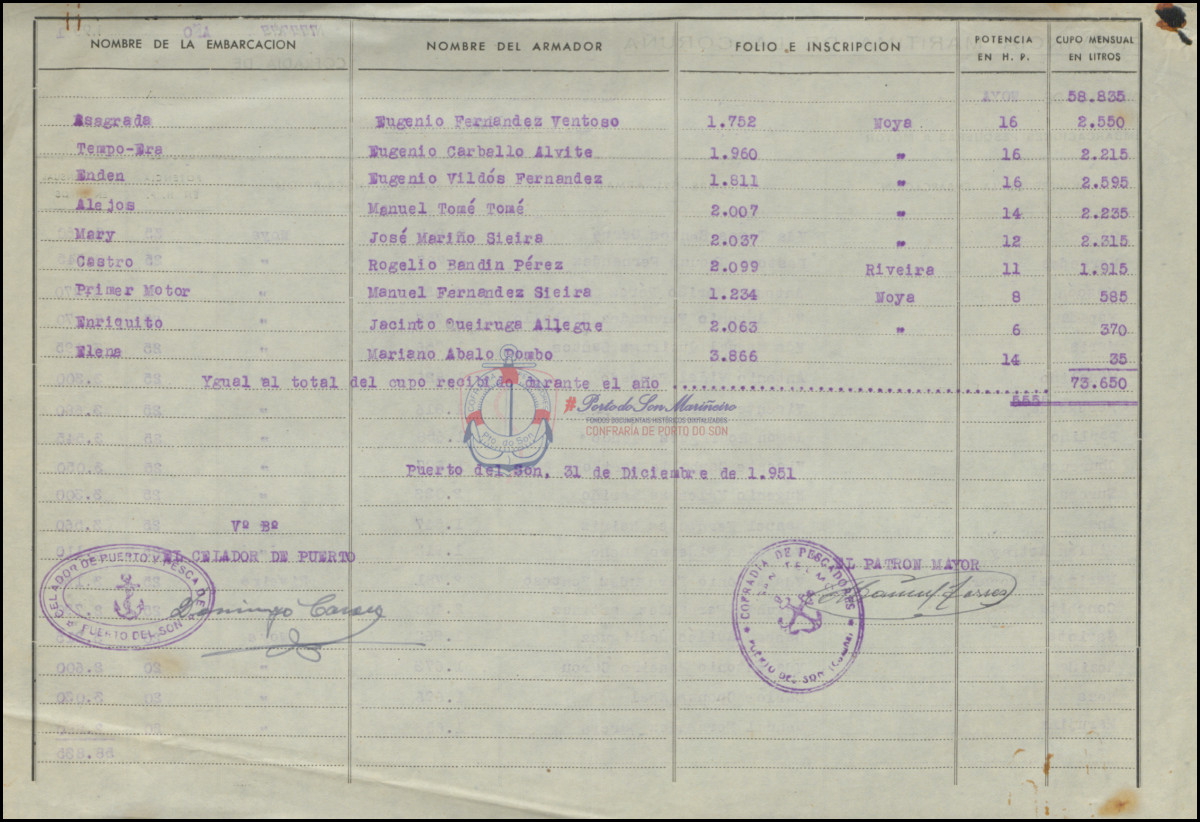 NOMBRE DE LA EMBARCACION NOMBRE DEL ARMADOR FOLIO E INSCRIPCION POTENCIA EN H. P. CUPO MENSUAL EN LITROS
58.835
Assgrada Eugenio Fernandez Ventoso 1.752 Noya 16 2.550
Tempo-Era Eugenio Carballo Alvite 1.960 " 16 2.215
Enden Eugenio Vildós Fernandez 1.811 " 16 2.595
Alejos Manuel Tomé Tomé 2.007 " 14 2.235
Mary José Mariño Sieira 2.037 " 12 2.315
Castro Rogelio Bandin Pérez 2.099 Riveira 11 1.915
Primer Motor Manuel Fernandez Sieira 1.234 Noya 8 585
Enriquito Jacinto Queiruga Allegue 2.063 " 6 370
Elena Mariano Abalo Pombo 3.866 14 35
Ygual al total del cupo recibido durante el año 73.650
555
#Porto do Son Mariñeiro
FONDOS DOCUMENTAIS HISTÓRICOS DIGITALIZADOS
CONFRARÍA DE PORTO DO SON
Pto. do Son
Puerto del Son, 31 de Diciembre de 1.951
Vº Bº
EL CELADOR DE PUERTO
EL PATRON MAYOR
CELADOR DE PUERTO Y PESCA DE
PUERTO DEL SON
Domingo
COFRADIA DE PESCADORES
SAN TELMO
PUERTO DEL SON